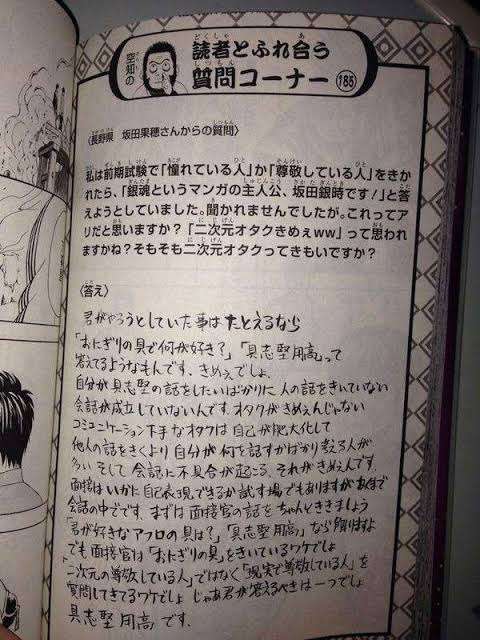 空知の
読者とふれ合う
質問コーナー 185
〈長野県 坂田果穂さんからの質問〉
私は前期試験で「憧れている人」か「尊敬している人」をきか
れたら、「銀魂というマンガの主人公、坂田銀時です！」と答
えようとしていました。聞かれませんでしたが。これってア
リだと思いますか？「二次元オタクきめぇww」って思われ
ますかね？そもそも二次元オタクってきもいですか？
〈答え〉
君がやろうとしていた事はたとえるなら
「おにぎりの具で何が好き？」「具志堅用高」って
答えてるようなもんです。きめぇでしょ。
自分が具志堅の話をしたいばかりに人の話をきいていない
会話が成立していないんです。オタクがきめぇんじゃない
コミュニケーション下手なオタクは自己が肥大化して
他人の話をきくより自分が何を話すかばかり考える人が
多い そして会話に不具合が起こる。それがきめぇんです。
面接はいかに自己表現できるか試す場でもありますがあくまで
会話の中でです。まずは面接官の話をちゃんとききましょう
「君が好きなアフロの具は？」「具志堅用高」なら解りますよ
でも面接官は「おにぎりの具」をきいているワケでしょ
「二次元の尊敬している人」ではなく「現実で尊敬している人」を
質問してきてるワケでしょ じゃあ君が答えるべきは一つでしょ
具志堅用高です。